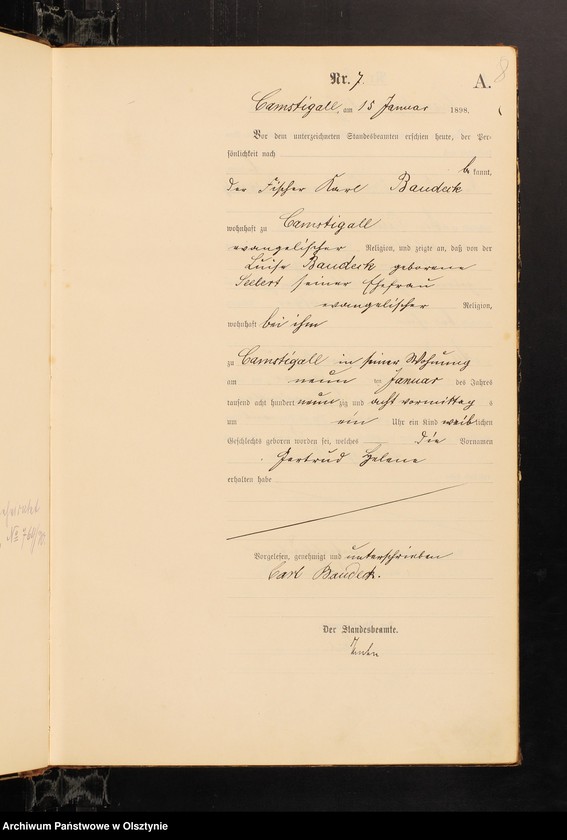 8
Nr. 7.
A.
Camstigall, am 15 Januar 1898.
Vor dem unterzeichneten Standesbeamten erschien heute, der Per-
sönlichkeit nach
be kannt,
der Fischer Karl Baudeck
wohnhaft zu Camstigall
evangelischer Religion, und zeigte an, daß von der
Luise Baudeck geborene
Seelert seiner Ehefrau
evangelischer Religion,
wohnhaft bei ihm
zu Camstigall in seiner Wohnung
am neun ten Januar des Jahres
tausend acht hundert neunzig und acht vormittag s
um ein Uhr ein Kind weiblichen
Geschlechts geboren worden sei, welches die Vornamen
Gertrud Helene
erhalten habe
Vorgelesen, genehmigt und unterschrieben
Carl Baudeck.
Der Standesbeamte.
Archiwum Państwowe w Olsztynie